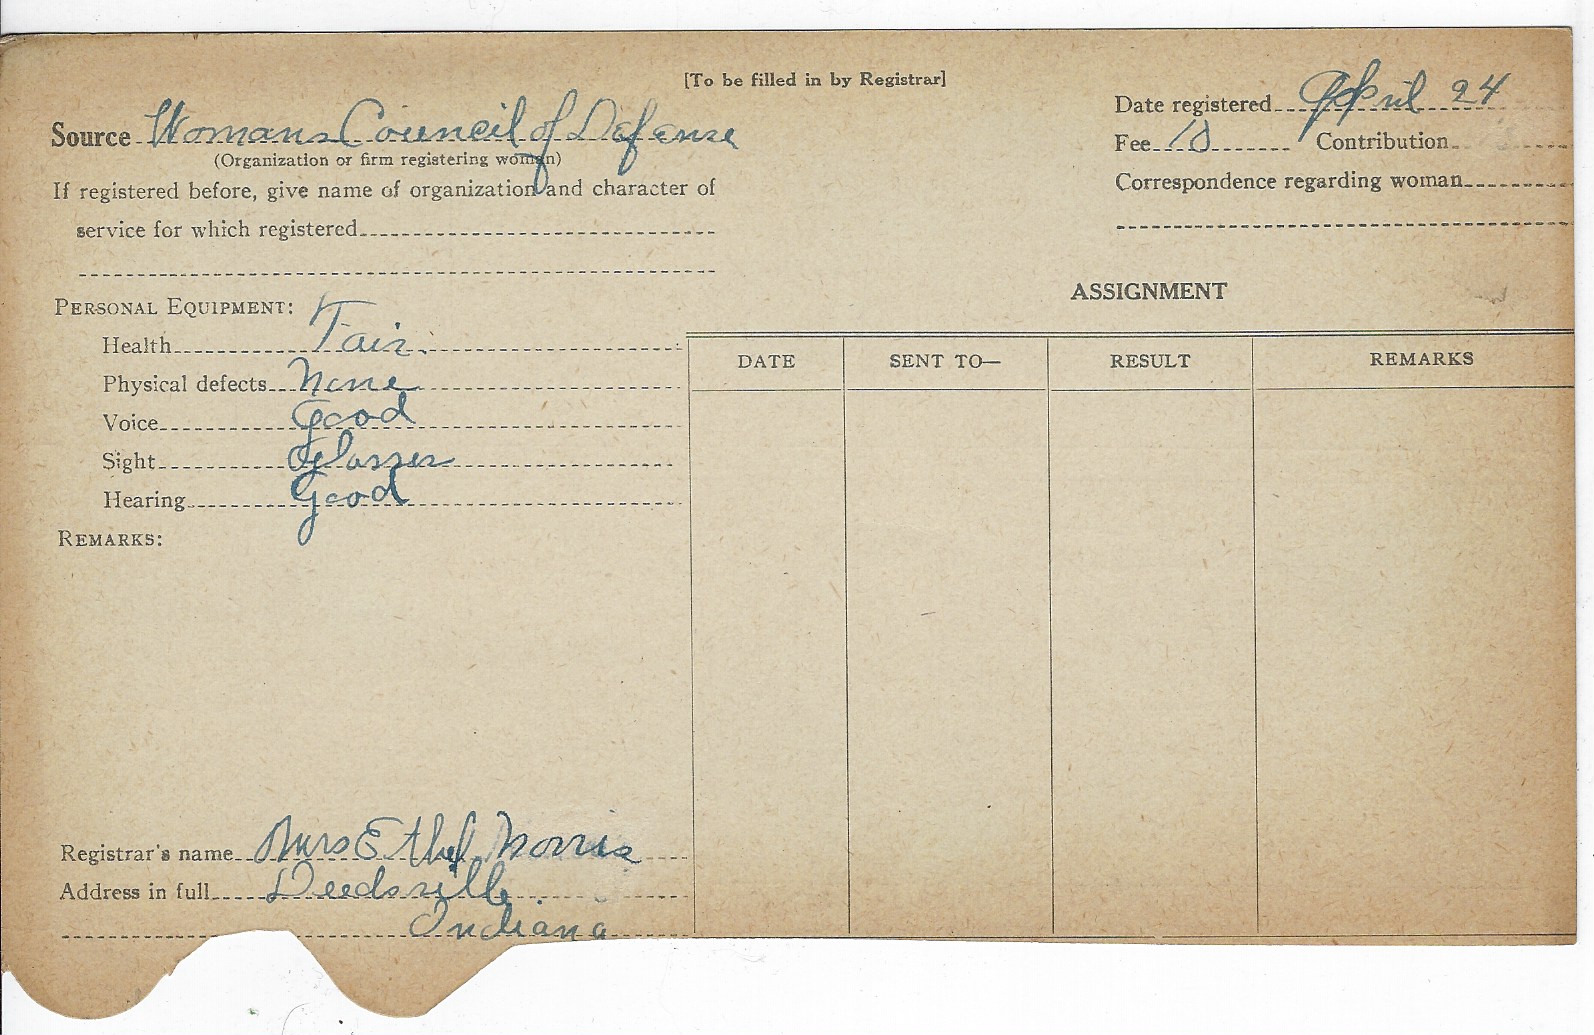 [To be filled in by Registrar]
Source Womans Council of Defense
(Organization or firm registering woman)
If registered before, give name of organization and character of
service for which registered
Date registered April 24
Fee Contribution
Correspondence regarding woman
PERSONAL EQUIPMENT:
Health Fair.
Physical defects None
Voice Good
Sight Glasses
Hearing Good
REMARKS:
ASSIGNMENT
DATE SENT TO— RESULT REMARKS
Registrar's name Mrs Ethel Norris
Address in full Deedsville
Indiana